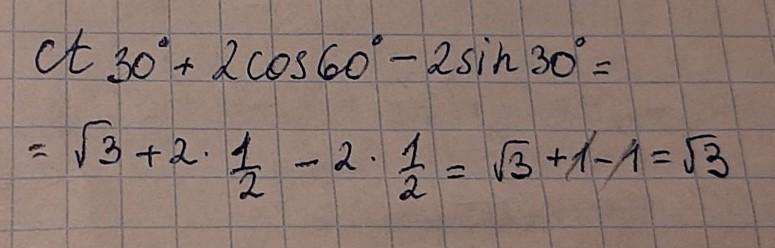 ct 30° + 2cos60° - 2sin30° =
= √3 + 2 · 1/2 - 2 · 1/2 = √3 + 1 - 1 = √3